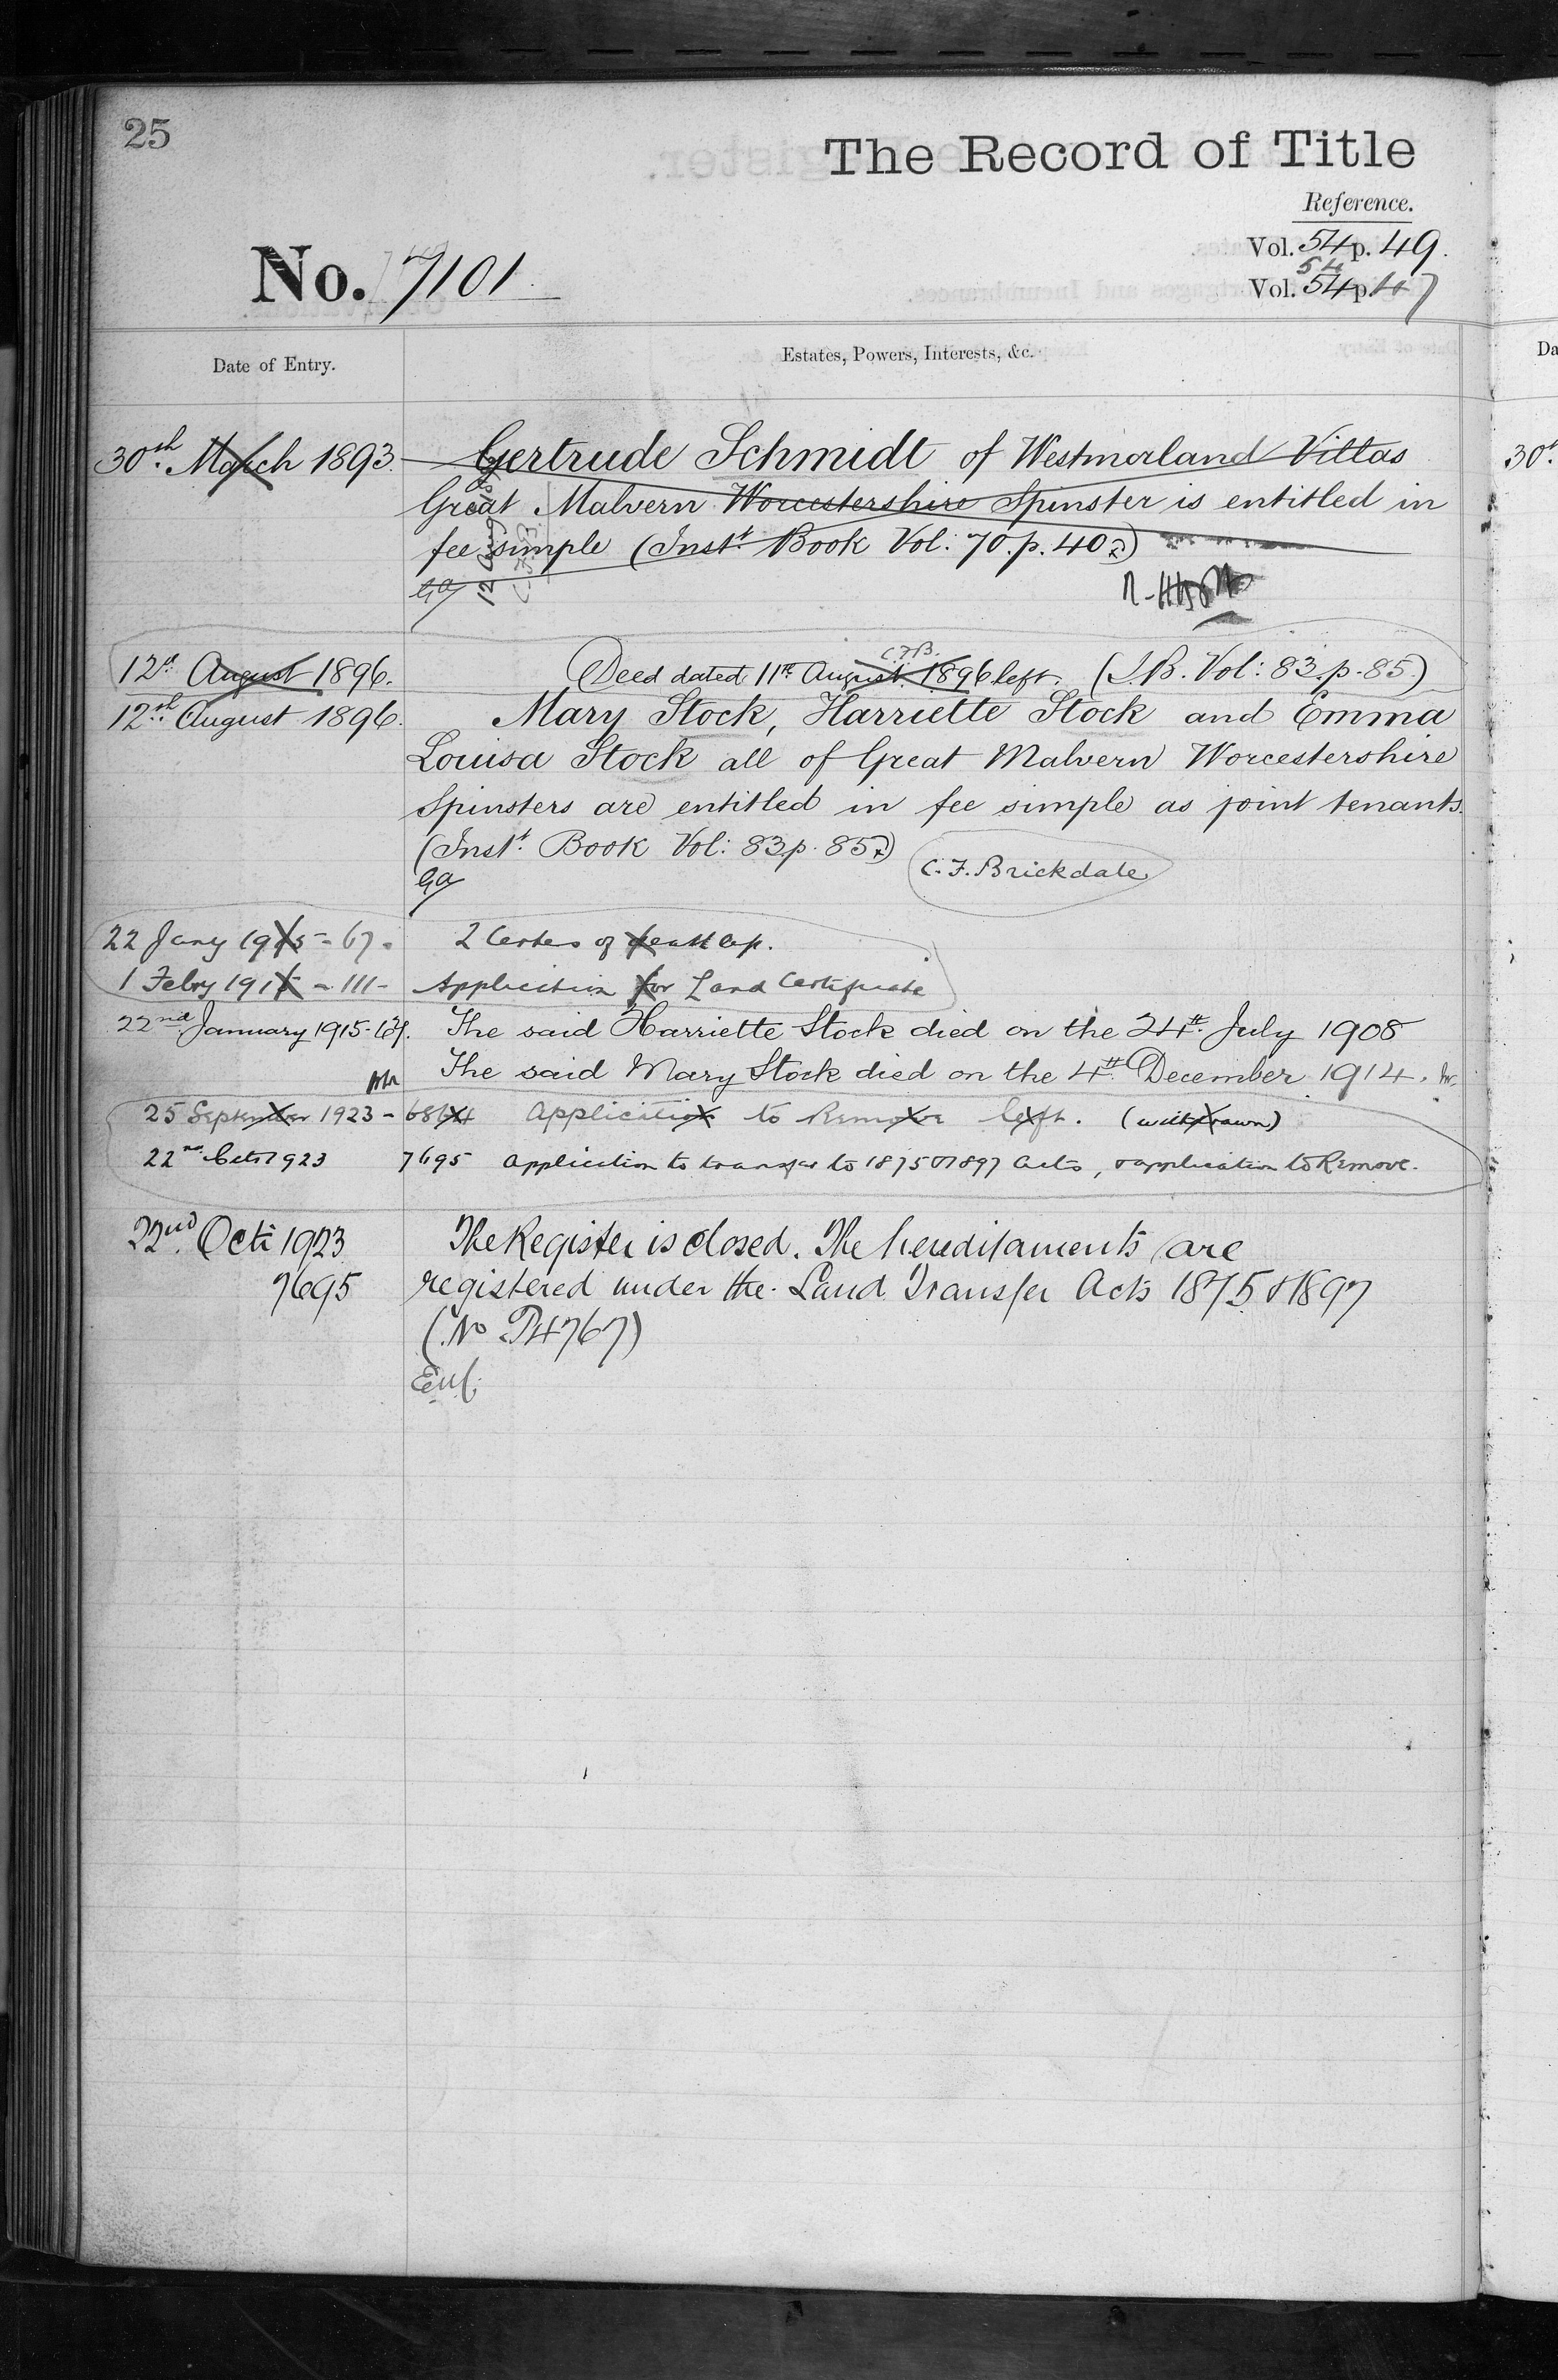 25
The Record of Title
Reference.
Vol. 54 p. 49.
54
Vol. 54 p. 47
No. 7101
Date of Entry.
Estates, Powers, Interests, &c.
Da
30th March 1893. Gertrude Schmidt of Westmorland Villas
30
Great Malvern Worcestershire Spinster is entitled in
fee simple (Inst. Book Vol: 70. p. 402)
Ga
C.F.B.
12th August 1896. Deed dated 11th August 1896 left. (I.B. Vol: 83. p. 85.)
12th August 1896. Mary Stock, Harriette Stock and Emma
Louisa Stock all of Great Malvern Worcestershire
Spinsters are entitled in fee simple as joint tenants.
(Inst. Book Vol: 83 p. 85)
Ga
C. F. Brickdale
22 Jany 1915 - 67. 2 Certes of death
1 Febry 1915 - 111 - Application for Land Certificate
22nd January 1915 - 67. The said Harriette Stock died on the 24th July 1908
The said Mary Stock died on the 4th December 1914.
25 September 1923 - 6864 Application to Remove left. (withdrawn)
22nd Octr 1923 7695 Application to transfer to 1875 & 1897 Acts, & application to Remove.
22nd Oct: 1923 The Register is closed. The hereditaments are
7695 registered under the Land Transfer Acts 1875 & 1897
(No P4767)